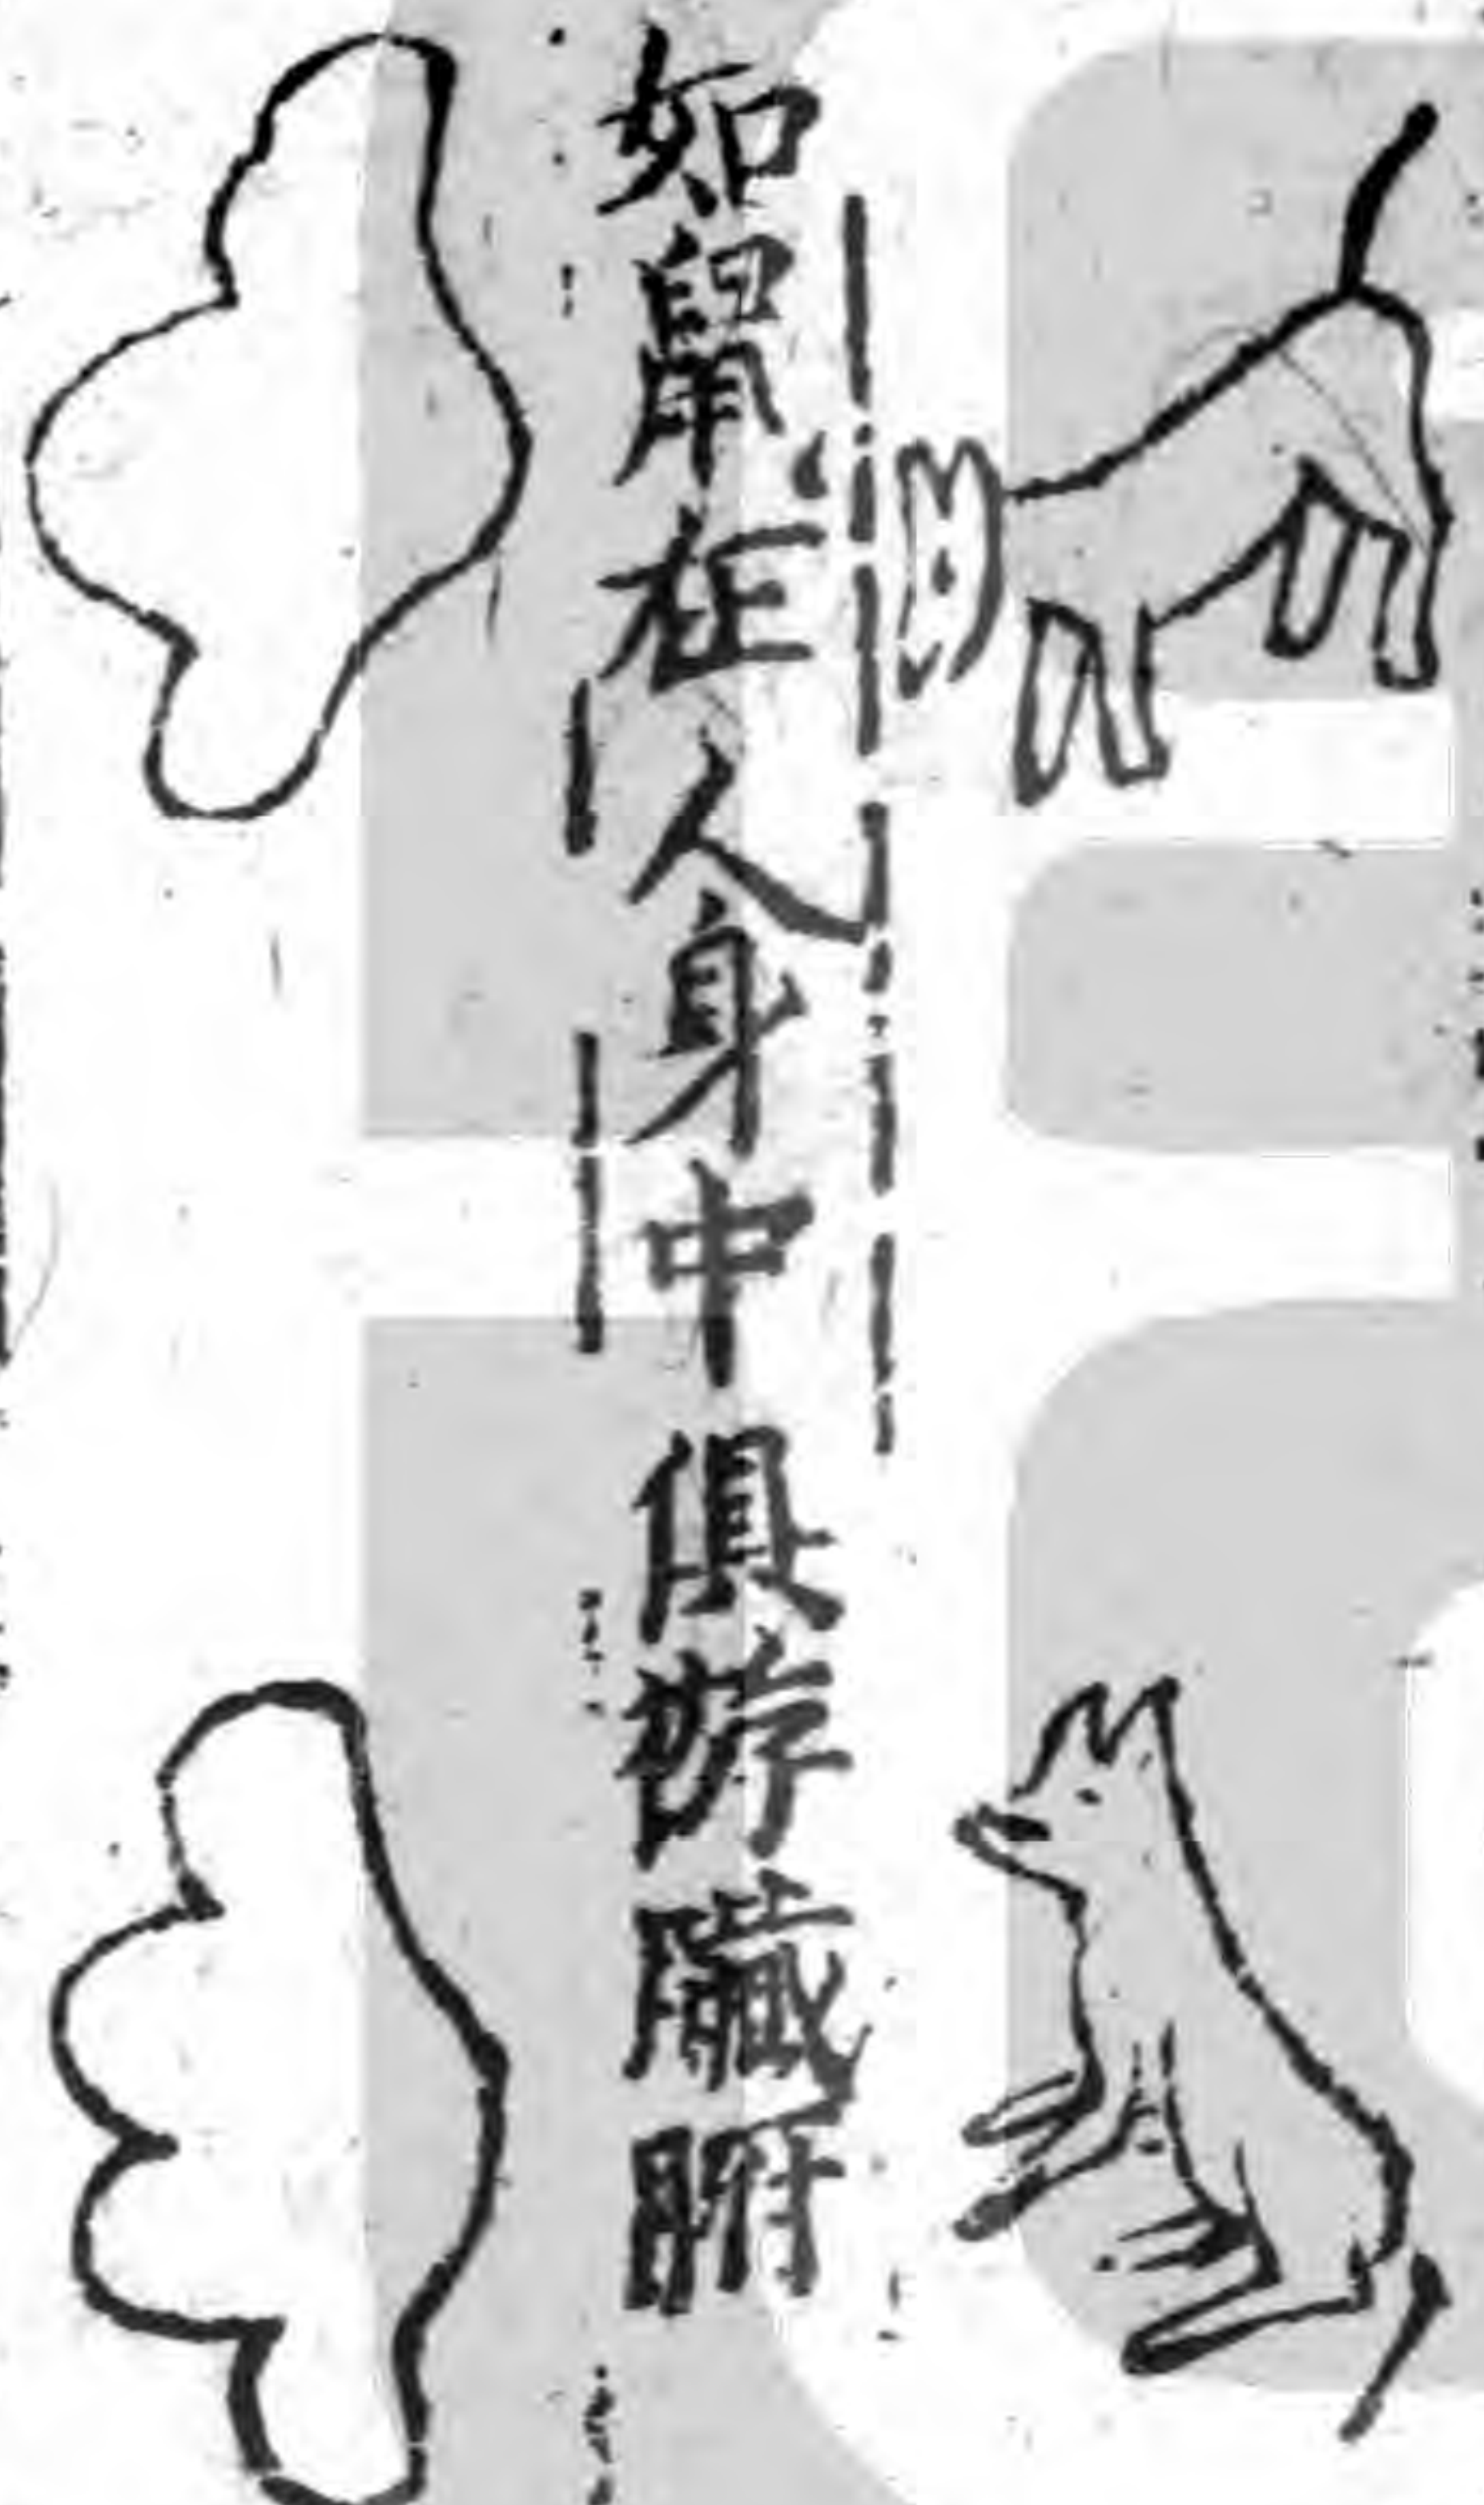 如鼠在人身中俱游臟腑